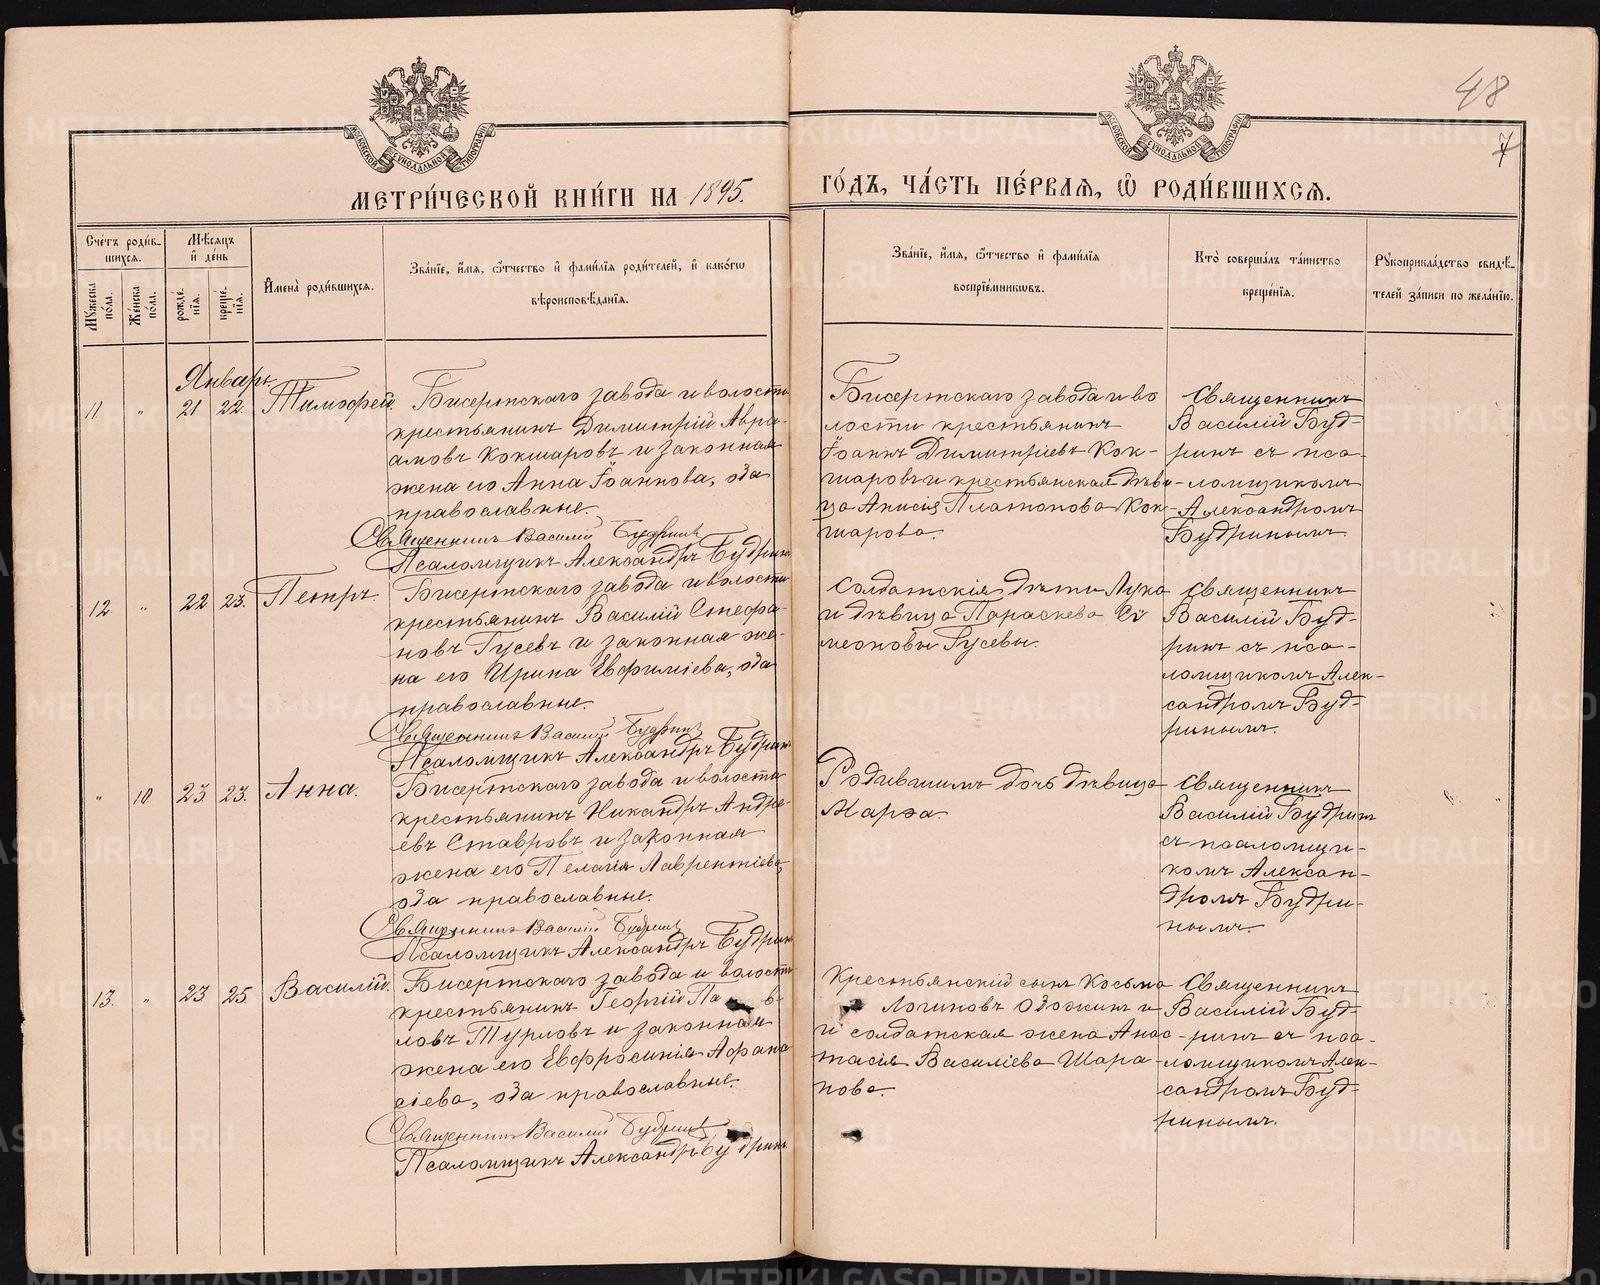 48
7
МЕТРИ́ЧЕСКОЙ КНИ́ГИ НА 1895.
ГО́ДЪ, ЧА́СТЬ ПЕ́РВАѦ, Ѽ РОДИ́ВШИХСѦ.
Сче́тъ роди́в-
шихсѧ.
Мꙋжеска
пола.
Же́нска
пола.
Мѣ́сѧцъ
и҆ де́нь
рожде-
нїѧ.
креще-
нїѧ.
И҆мена̀ роди́вшихсѧ.
Зва́нїе, и҆́мѧ, ѻ҆́тчество и҆ фами́лїѧ роди́телей, и҆ како́гѡ
вѣроисповѣ́данїѧ.
Зва́нїе, и҆́мѧ, ѻ҆́тчество и҆ фами́лїѧ
воспрїе́мникѡвъ.
Кто̀ соверша́лъ та́инство
креще́нїѧ.
Рꙋкоприкла́дство свидѣ́-
телей за́писи по жела́нїю.
Январь.
11 " 21 22. Тимофей.
Бисертскаго завода и волости
крестьянинъ Димитрій Авра-
амовъ Кокшаровъ и законная
жена его Анна Іоаннова, оба
православные.
Священникъ Василій Будринъ
Псаломщикъ Александръ Будринъ
Бисертскаго завода и во
лости крестьянинъ
Іоаннъ Димитріевъ Кок-
шаровъ и крестьянская дѣви-
ца Анисія Платонова Кок-
шарова.
Священникъ
Василій Буд-
ринъ съ пса-
ломщикомъ
Александромъ
Будринымъ
12 " 22 23. Петръ.
Бисертскаго завода и волости
крестьянинъ Василій Стефа-
новъ Гусевъ и законная же-
на его Ирина Евфиміева, оба
православные.
Священникъ Василій Будринъ
Псаломщикъ Александръ Будринъ
Солдатскія дѣти Лука
и дѣвица Параскева Си
меоновы Гусевы.
Священникъ
Василій Буд-
ринъ съ пса-
ломщикомъ Алек-
сандромъ Буд-
ринымъ.
" 10 23 23. Анна.
Бисертскаго завода и волости
крестьянинъ Никандръ Андре-
евъ Ставровъ и законная
жена его Пелагія Лаврентіева,
оба православные.
Священникъ Василій Будринъ
Псаломщикъ Александръ Будринъ
Родившимъ дочь дѣвица
Марѳа.
Священникъ
Василій Будринъ
съ псаломщи-
комъ Алексан-
дромъ Будри-
нымъ.
13. " 23 25. Василій.
Бисертскаго завода и волости
крестьянинъ Георгій
ловъ Турловъ и законная
жена его Евфросинія Афана
сіева, оба православные.
Священникъ Василій Будринъ
Псаломщикъ Александръ Будринъ
Крестьянскій сынъ Косьма
Логиновъ и
и солдатская жена Анас-
тасія Василіева Шара-
пова.
Священникъ
Василій Буд-
ринъ съ пса-
ломщикомъ Алек-
сандромъ Буд-
ринымъ.
METRIKI.GASO-URAL.RU